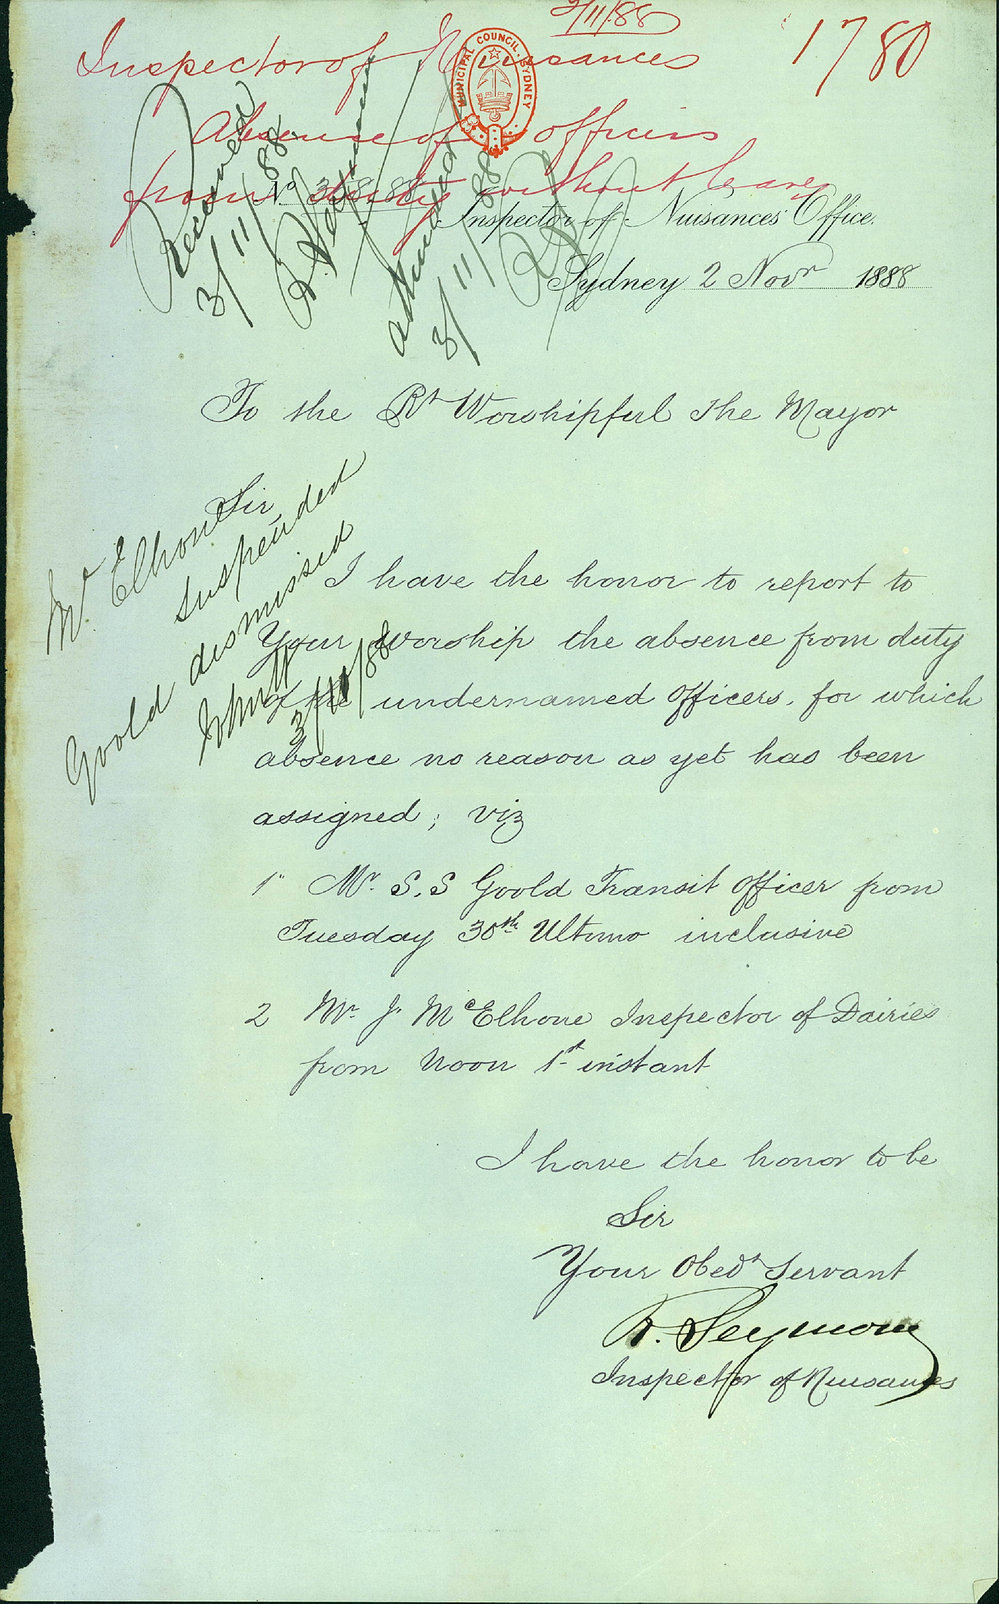 2/11/88
1780
Inspector of Nuisances
MUNICIPAL COUNCIL, SYDNEY
Absence of officers
from duty without leave
No. 318/88
Inspector of Nuisances' Office.
Sydney 2 Novr 1888
Received
3/11/88
R. Seymour
3/11/88
To the Rt Worshipful The Mayor
Sir
Mr. Elhone suspended
Goold dismissed
3/11/88
I have the honor to report to
Your Worship the absence from duty
of the undernamed Officers, for which
absence no reason as yet has been
assigned; viz
1 Mr. S. S Goold Transit Officer from
Tuesday 30th Ultimo inclusive
2 Mr. J. McElhone Inspector of Dairies
from Noon 1st instant
I have the honor to be
Sir
Your Obedt Servant
R. Seymour
Inspector of Nuisances